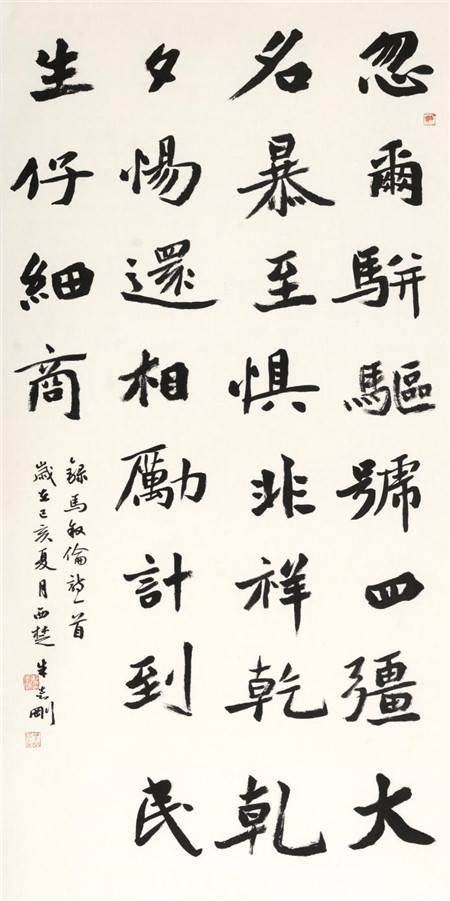 忽爾駢驅號四彊大
名暴至惧非祥乾乾
夕惕還相勵計到民
生仔細商
錄馬敘倫詩一首
歲在己亥夏月西楚朱志剛